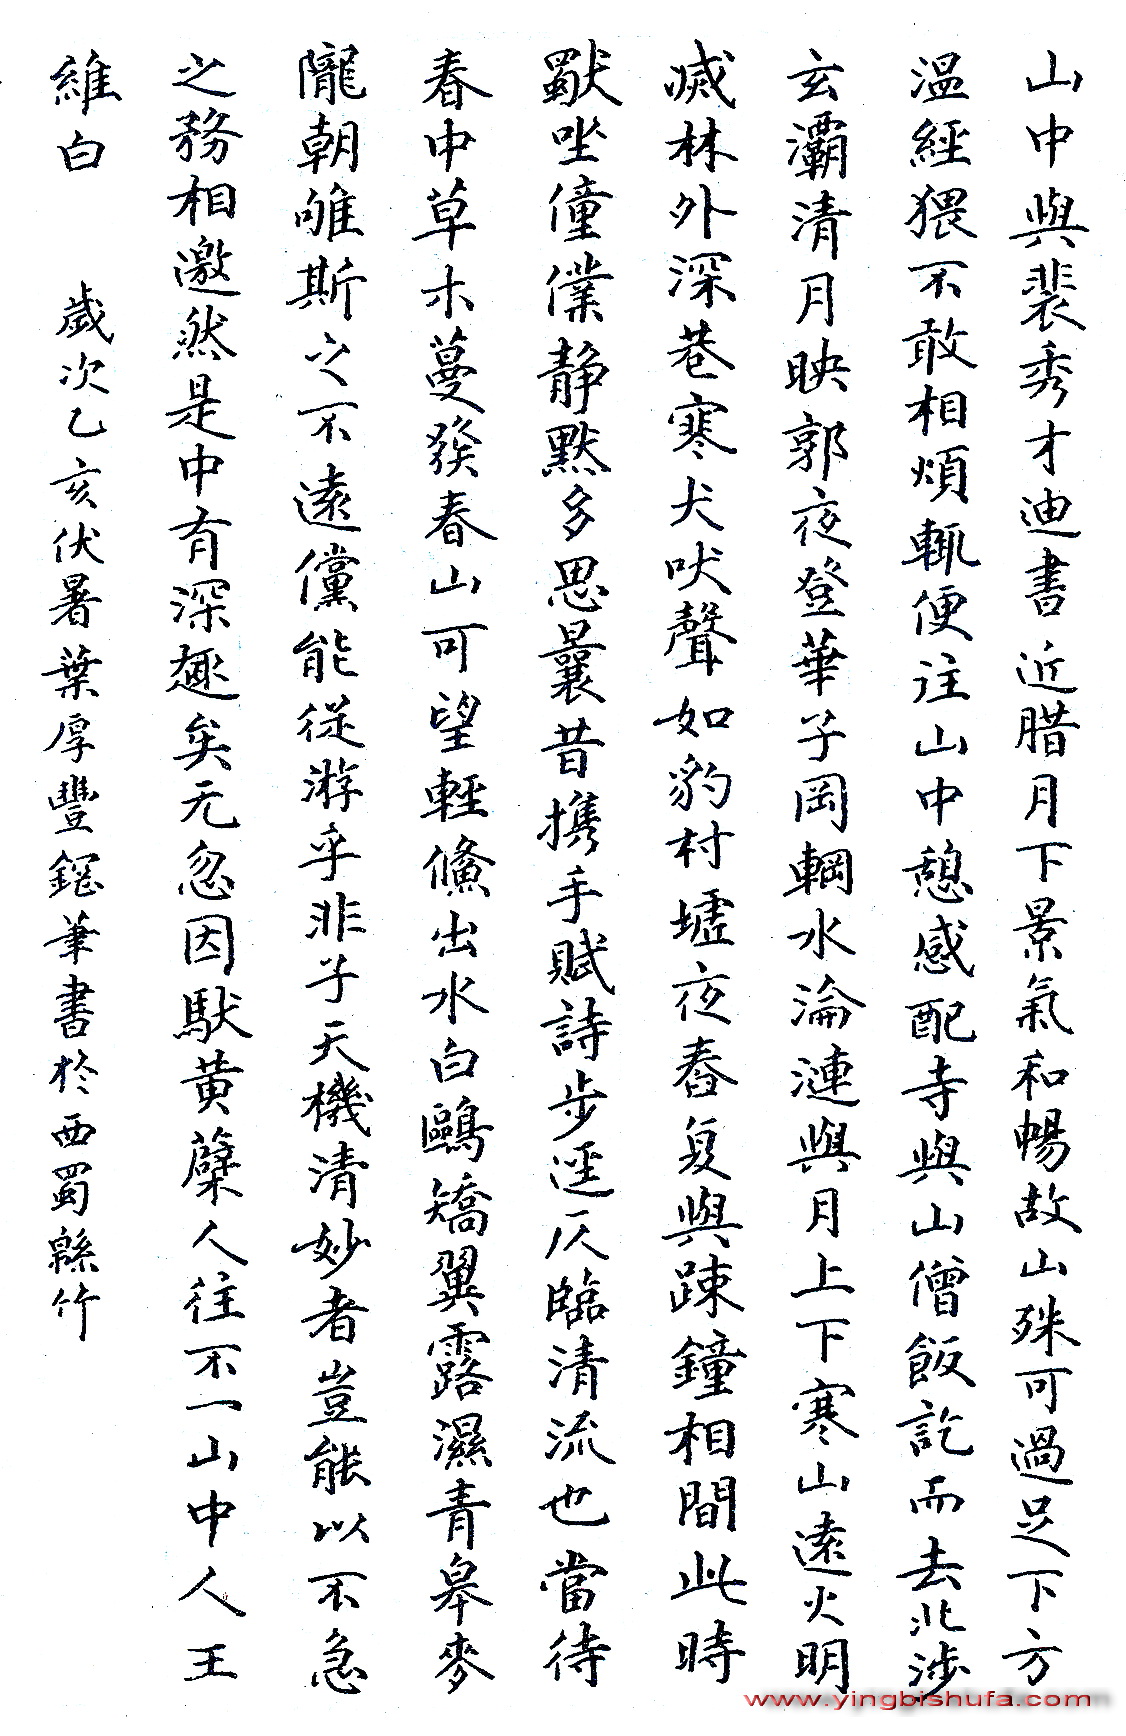 山中與裴秀才迪書近腊月下景氣和暢故山殊可過足下方
温經猥不敢相煩輒便往山中憩感配寺與山僧飯訖而去北涉
玄灞清月映郭夜登華子岡輞水淪漣與月上下寒山遠火明
滅林外深巷寒犬吠聲如豹村墟夜舂复與疎鐘相間此時
獨坐僮僕靜默多思曩昔携手賦詩步逕仄臨清流也當待
春中草木蔓發春山可望輕鯈出水白鷗矯翼露濕青皋麥
隴朝雊斯之不遠儻能從游乎非子天機清妙者豈能以不急
之務相邀然是中有深趣矣无忽因馱黄蘗人往不一山中人王
維白 歲次乙亥伏暑葉厚豐鋼筆書於西蜀緜竹
www.yingbishufa.com